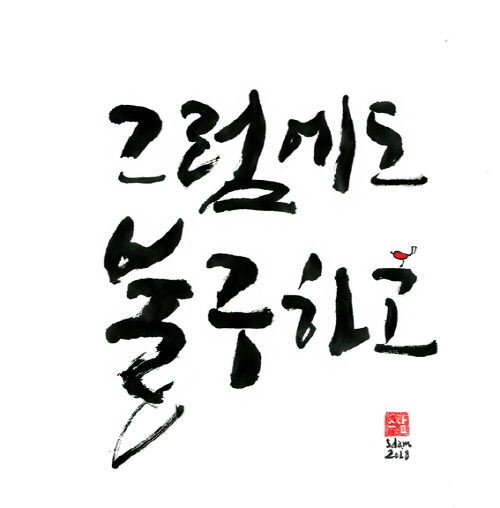 그럼에도
불구하고
Sdam
2018